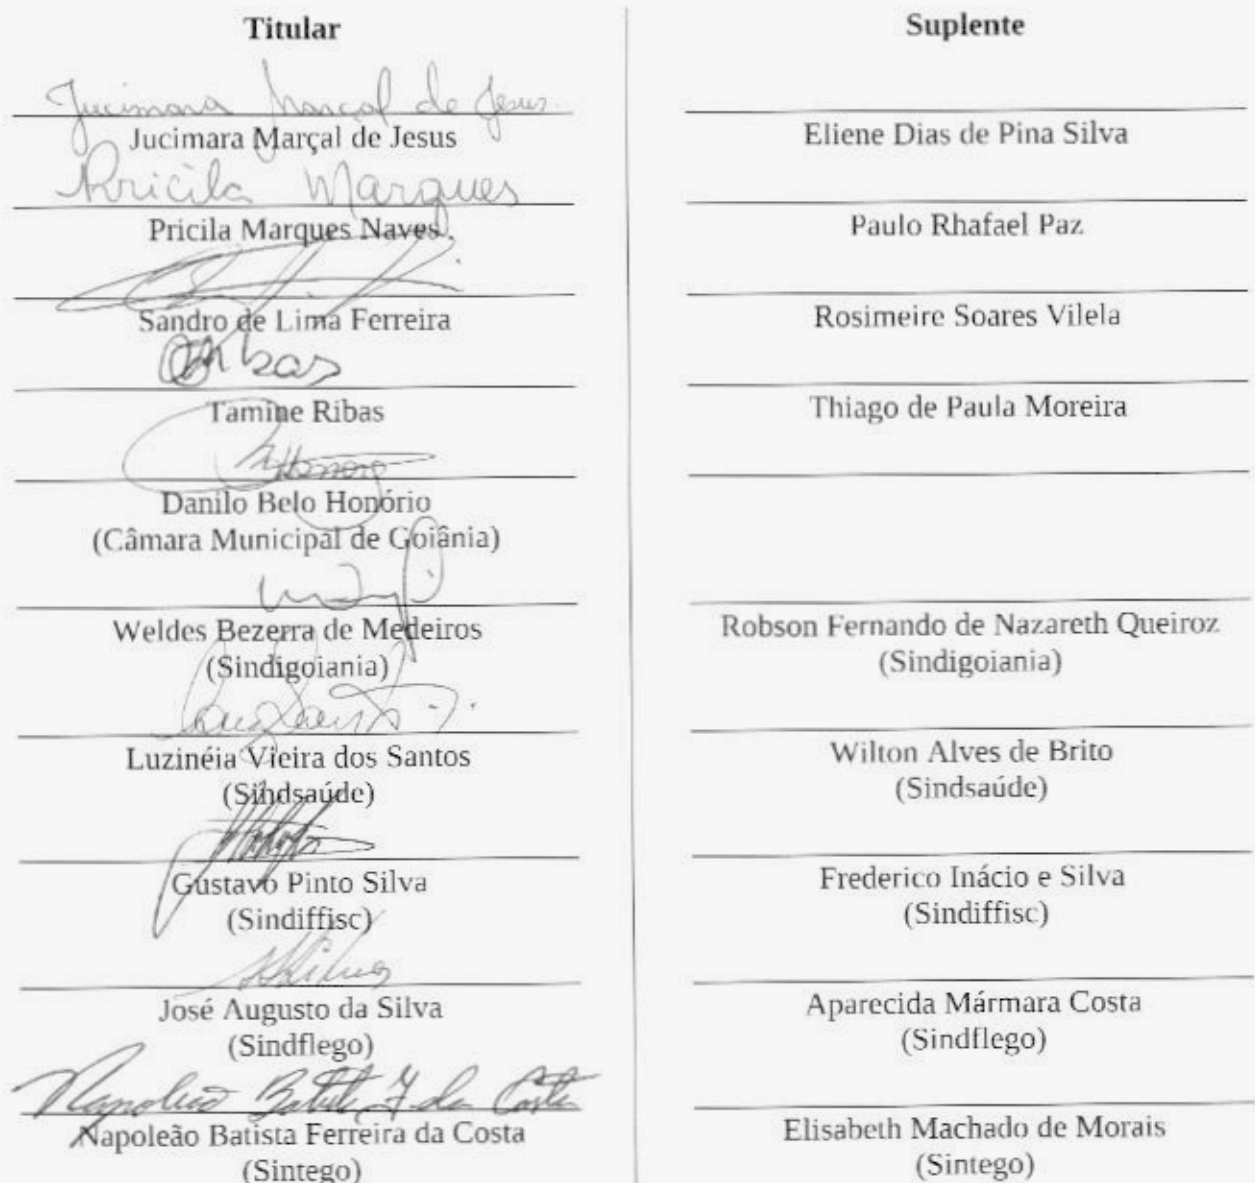 Titular
Jucimara Marçal de Jesus
Jucimara Marçal de Jesus
Pricila Marques
Pricila Marques Naves
Sandro de Lima Ferreira
Ribas
Tamine Ribas
Danilo Belo Honório
(Câmara Municipal de Goiânia)
Weldes Bezerra de Medeiros
(Sindigoiania)
Luzinéia Vieira dos Santos
(Sindsaúde)
Gustavo Pinto Silva
(Sindiffisc)
José Augusto da Silva
(Sindflego)
Napoleão Batista F da Costa
Napoleão Batista Ferreira da Costa
(Sintego)
Suplente
Eliene Dias de Pina Silva
Paulo Rhafael Paz
Rosimeire Soares Vilela
Thiago de Paula Moreira
Robson Fernando de Nazareth Queiroz
(Sindigoiania)
Wilton Alves de Brito
(Sindsaúde)
Frederico Inácio e Silva
(Sindiffisc)
Aparecida Mármara Costa
(Sindflego)
Elisabeth Machado de Morais
(Sintego)